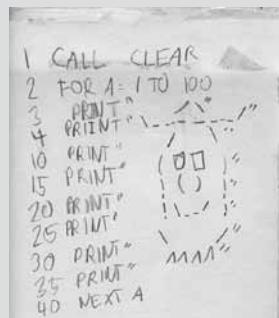 1 CALL CLEAR
2 FOR A=1 TO 100
3 PRINT" /\"
4 PRIINT" \_ _ _ _ _ _/"
10 PRINT" / \"
15 PRINT" ( 00 |"
20 PRINT" | ( ) |"
25 PRINT" ! \_./ /"
30 PRINT" \ /"
35 PRINT" ^^^^"
40 NEXT A